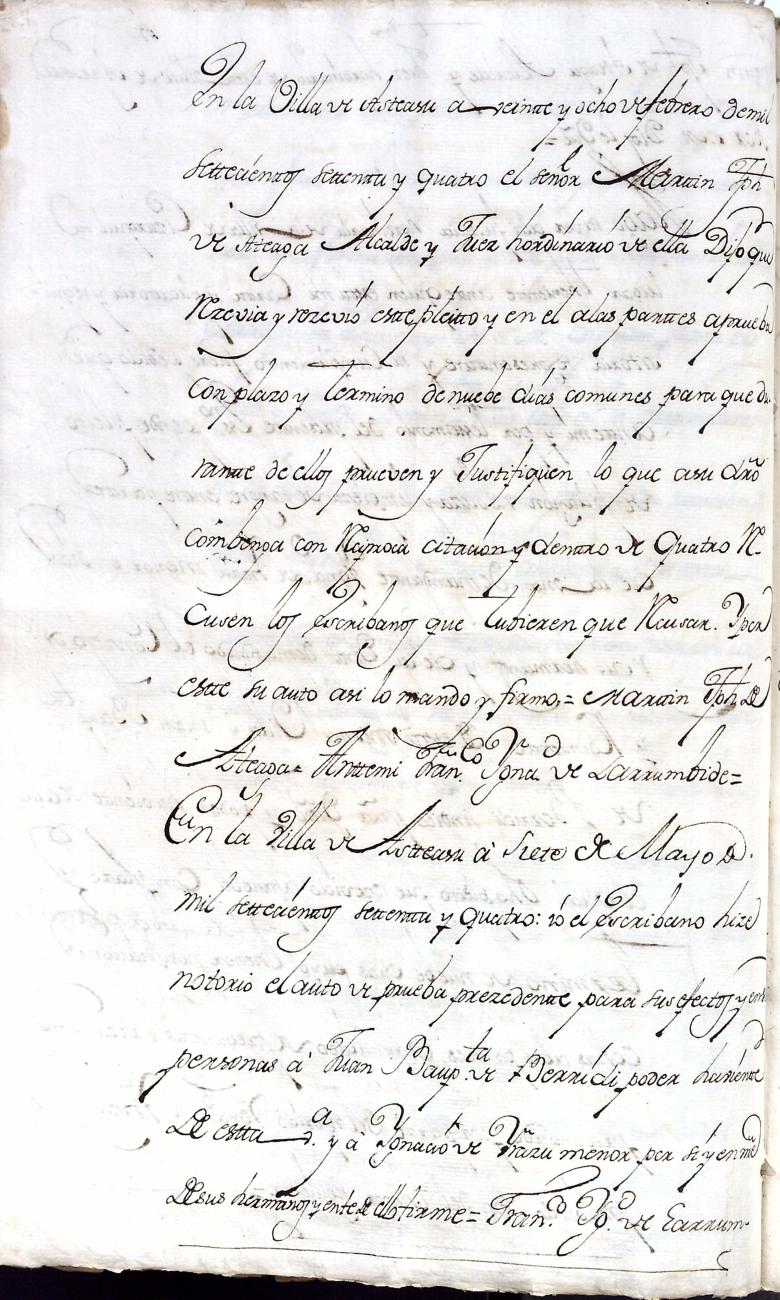 En la Villa de Asteasu a veinte y ocho de febrero de mil
settecientos setenta y quatro el señor Martin Jph
de Ateaga Alcalde y Juez hordinario de ella Dijo que
Rezevia y rezevio este pleitto y en el a las partes a prueba
con plazo y termino de nuebe dias comunes para que du-
rante de ellos prueven y Justifiquen lo que a su dro
combenga con Reziproca citacion y dentro de quatro Re-
cusen los Escribanos que tubieren que Recusar. Y por
este su auto asi lo mando y firmo,= Martin Jph de
Ateaga= Anttemi Franco Ygnaº de Larrumbide=
En la Villa de Asteasu à siete de Mayo de
mil settecientos setenta y quatro: io el Escribano hize
notorio el auto de prueba prezedente para sus efectos y en
personas à Juan Baupta de Berridi poder haviente
de esta y à Ygnacio de Yrazu menor por sí y en nre
de sus hermanos y en fe de ello firme= Franco Ygº de Larrum-